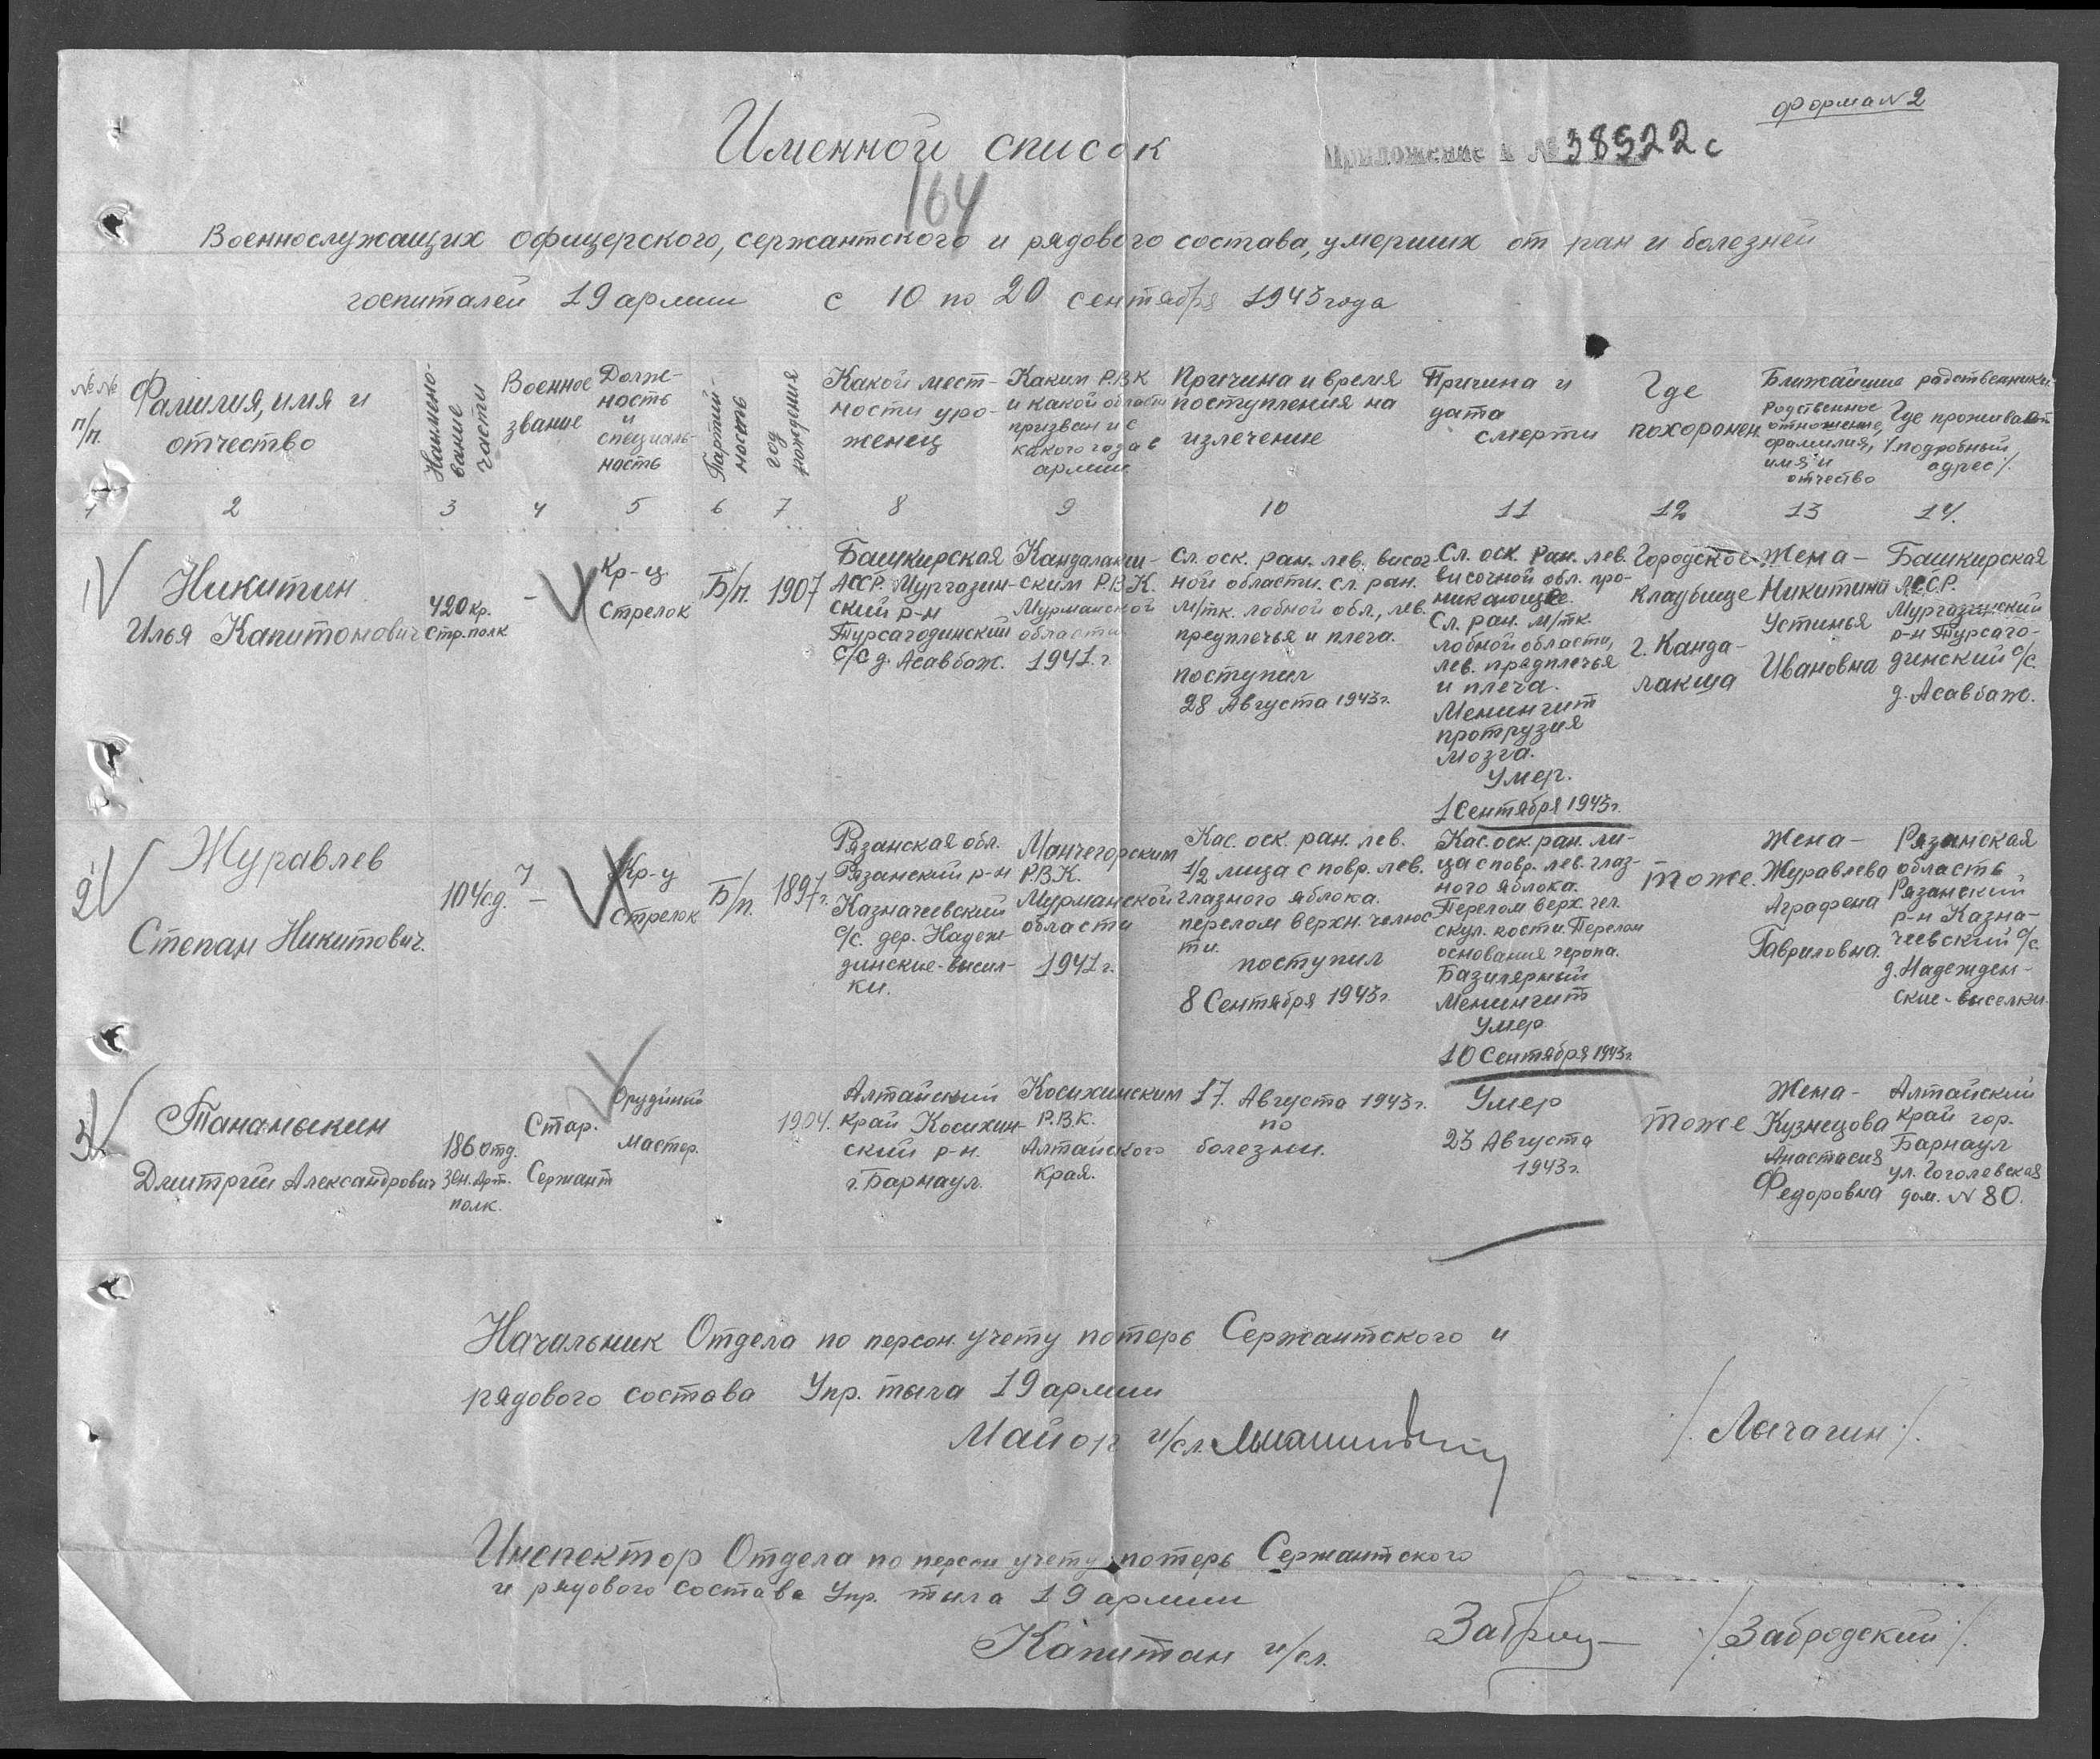 Форма N 2
Именной список
Приложение к № 38522 с
164
Военнослужащих офицерского, сержантского и рядового состава, умерших от ран и болезней
госпиталей 19 армии с 10 по 20 сентября 1943 года
№№ п/п.
Фамилия, имя и
отчество
Наимено-
вание
части
Военное
звание
Долж-
ность
и
специаль-
ность
Партий-
ность
год
рождения
Какой мест-
ности уро-
женец
Каким Р.В.К
и какой области
призван и с
какого года в
армии
Причина и время
поступления на
излечение
Причина и
дата
смерти
Где
похоронен
Ближайшие родственники
Родственное
отношение,
фамилия,
имя и
отчество
Где проживают
/.подробный
адрес/.
1 2 3 4 5 6 7 8 9 10 11 12 13 14.
1
Никитин
Илья Капитонович
420 кр.
стр. полк
-
Кр-ц
Стрелок
Б/п.
1907
Башкирская
АССР. Мургазин-
ский р-н
Турсагодинский
с/с д. Асавбаж.
Кандалакш-
ским Р.В.К.
Мурманской
области
1941. г
Сл. оск. ран. лев. височ-
ной области. сл. ран.
м/тк. лобной обл., лев.
предплечья и плеча.
поступил
28 Августа 1943г.
Сл. оск. Ран. лев.
височной обл. про-
никающее.
Сл. ран. м/тк.
лобной области,
лев. предплечья
и плеча.
Менингит
протрузия
мозга.
Умер.
1 Сентября 1943г.
Городское
кладбище
г. Канда-
лакша
Жена-
Никитина
Устинья
Ивановна
Башкирская
АССР.
Мургазинский
р-н Турсаго-
динский с/с.
д. Асавбаж.
2
Журавлев
Степан Никитович.
104 сд.
-
Кр-ц
Стрелок
Б/п.
1897г.
Рязанская обл.
Рязанский р-н
Казначеевский
с/с. дер. Надеж-
динские-высел-
ки.
Манчегорским
Р.В.К.
Мурманской
области
1941 г.
Кас. оск. ран. лев.
1/2 лица с повр. лев.
глазного яблока.
перелом верхн. челюс-
ти.
поступил
8 Сентября 1943г.
Кас. оск. ран. ли-
ца с повр. лев. глаз-
ного яблока.
Перелом верх. чел.
скул. кости. Перелом
основания черепа.
Базилярный
Менингит
Умер
10 Сентября 1943г.
тоже.
Жена-
Журавлева
Аграфена
Гавриловна.
Рязанская
область
Рязанский
р-н Казна-
чеевский с/с.
д. Надежден-
ские-выселки.
3
Тананыкин
Дмитрий Александрович
186 отд.
Зен. Арт.
полк.
Стар.
Сержант
Орудийный
Мастер.
1904.
Алтайский
край Косихин-
ский р-н.
г. Барнаул.
Косихинским
Р.В.К.
Алтайского
края.
17. Августа 1943г.
по
болезни.
Умер
23 Августа
1943г.
тоже
Жена-
Кузнецова
Анастасия
Федоровна
Алтайский
край гор.
Барнаул
ул. Гоголевская
дом. N 80.
Начальник Отдела по персон. учету потерь Сержантского и
рядового состава Упр. тыла 19 армии
Майор и/сл. /. Лычагин /.
Инспектор Отдела по персон учету потерь Сержантского
и рядового состава Упр. тыла 19 армии
Капитан и/сл. /. Забродский /.